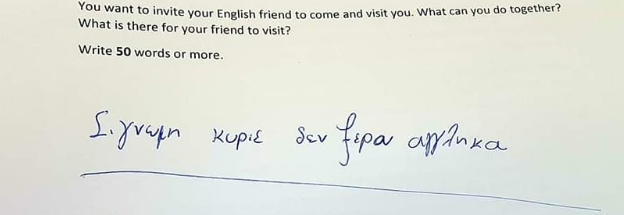 You want to invite your English friend to come and visit you. What can you do together?
What is there for your friend to visit?
Write 50 words or more.
Σιγνωμη κυριε δεν ξερω αγγληκα